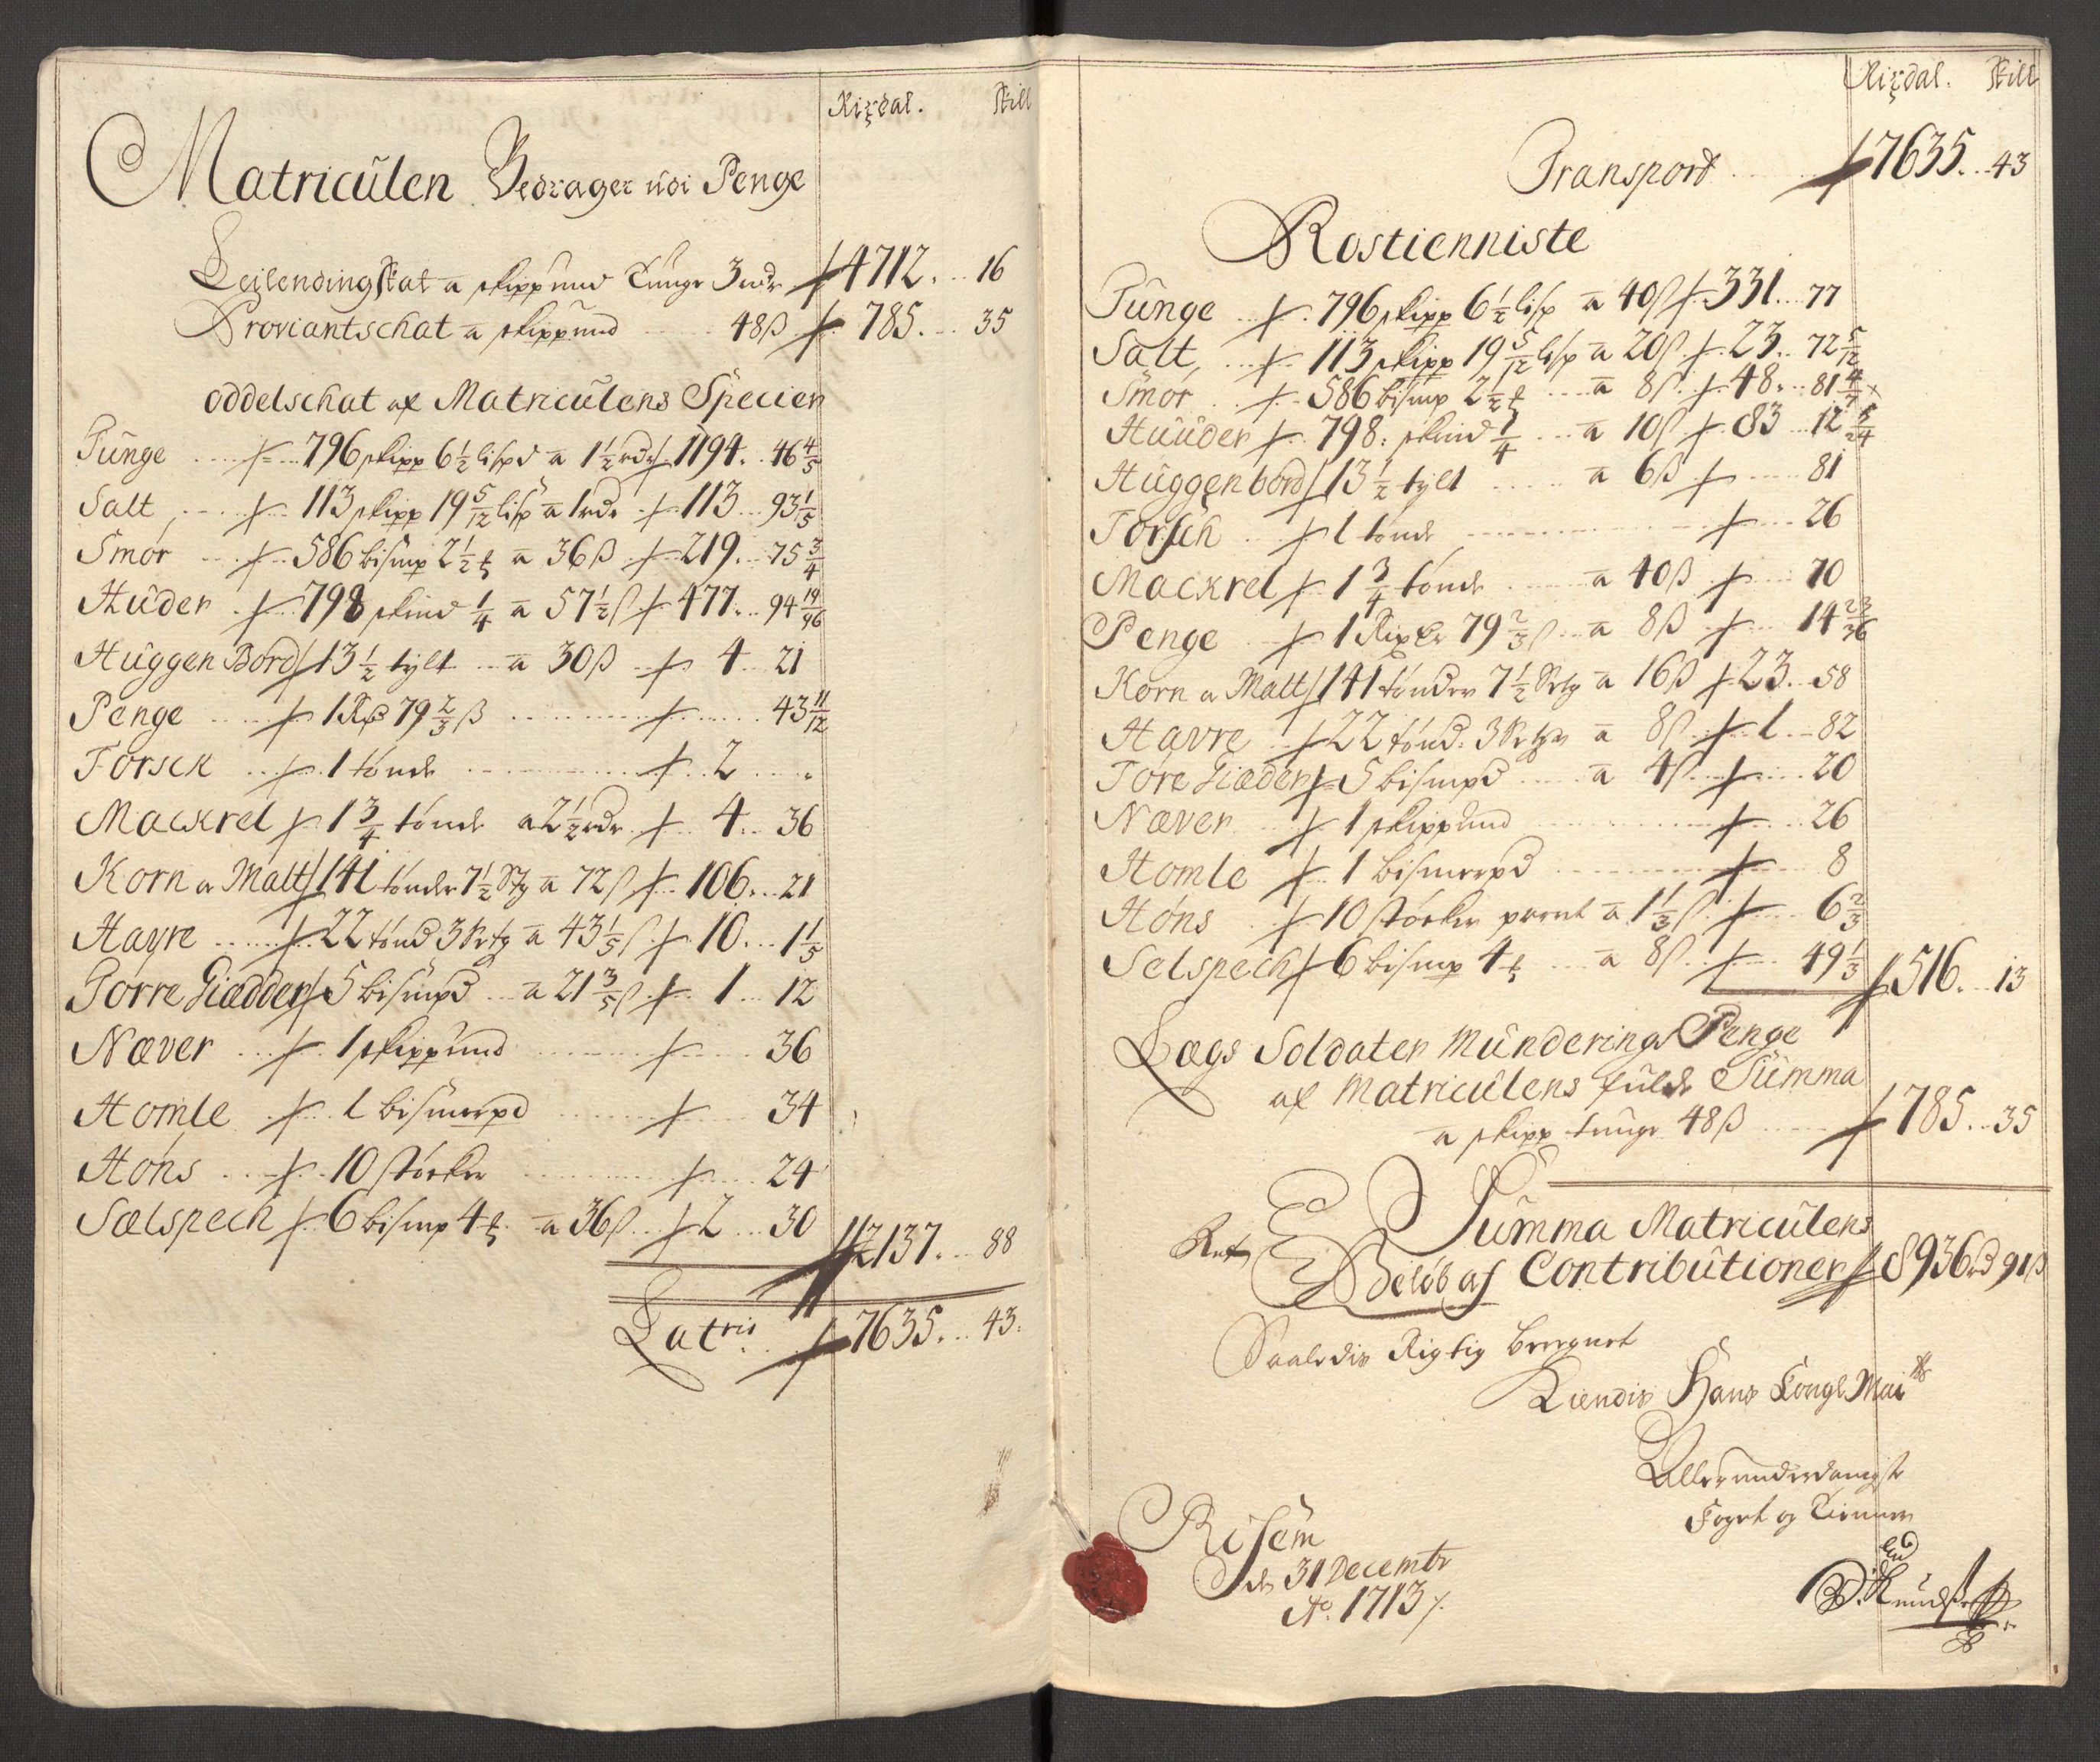 Rixdal. skill
Matriculen Bedrager udi Penge
Leilendingskat a skippund Tunge 3 rdr 4712. 16
Proviantschat a skippund 48ß 785. 35
oddelschat af Matriculens Specier
Tunge 796 skipp 6 1/2 lispd a 1 1/2 rdr 1194. 46 4/5
Salt, 113 skipp 19 5/12 lisp a 1 rdr 113. 93 1/5
Smør 586 bismp 2 1/2 ℔ a 36ß 219. 75 3/4
Huder 798 skind 1/4 a 57 1/2 ß 477. 94 19/96
Huggen Bord 13 1/2 tylt a 30ß 4. 21
Penge 1 Rß 79 2/3 ß 43 11/12
Torsck 1 tønde 2 .
Mackrel 1 3/4 tønde a 2 1/2 rdr 4. 36
Korn a Malt 141 tønder 7 1/2 Stg a 72ß 106. 21
Havre 22 tønd 3 Setg a 43 1/5 ß 10. 1 1/5
Torre Giedder 5 bismpd a 21 3/5 ß 1. 12
Næver 1 skippund 36
Homle 1 bismerpd 34
Høns 10 støcker 24
Sælspech 6 bismp 4 ℔ a 36ß 2 30 2137. 88
Latris 7635. 43.
Rixdal. skill
Transport 7635. 43
Rostienniste
Tunge 796 skipp 6 1/2 lisp a 40ß 331. 77
Salt, 113 skipp 19 5/12 lisp a 20ß 23. 72 5/12
Smør 586 bismp 2 1/2 ℔ a 8ß 48. 81 4/7
Huuder 798: skind 1/4 a 10ß 83 12 5/24
Huggenbord 13 1/2 tylt a 6ß 81
Torsch 1 tønde 26
Mackrel 1 3/4 tønde a 40ß 70
Penge 1 Rixdr 79 2/3 ß a 8ß 14 23/36
Korn a Malt 141 tønder 7 1/2 Setg a 16ß 23. 58
Havre 22 tønd. 3 Setger a 8ß 1. 82
Tøre Giæder 5 bismpd a 4ß 20
Næver 1 skippund 26
Homle 1 bismerpd 8
Høns 10 støcker parret a 1 1/3 ß 6 2/3
Selspech 6 bismp 4 ℔ a 8ß 49 1/3 516. 13
Lægs Soldater Munderings Penge
af Matriculens fulde Summa
a skipp tunge 48ß 785. 35
Summa Matriculens
Beløb af Contributioner 8936 rd 91ß
Saaledis Rigtig beregnet
Kiendis Hans Kongl Mai
Allerunderdanigste
Foget og Tienner
Risem
d. 31 Decembr
Ao. 1713
Knudsen